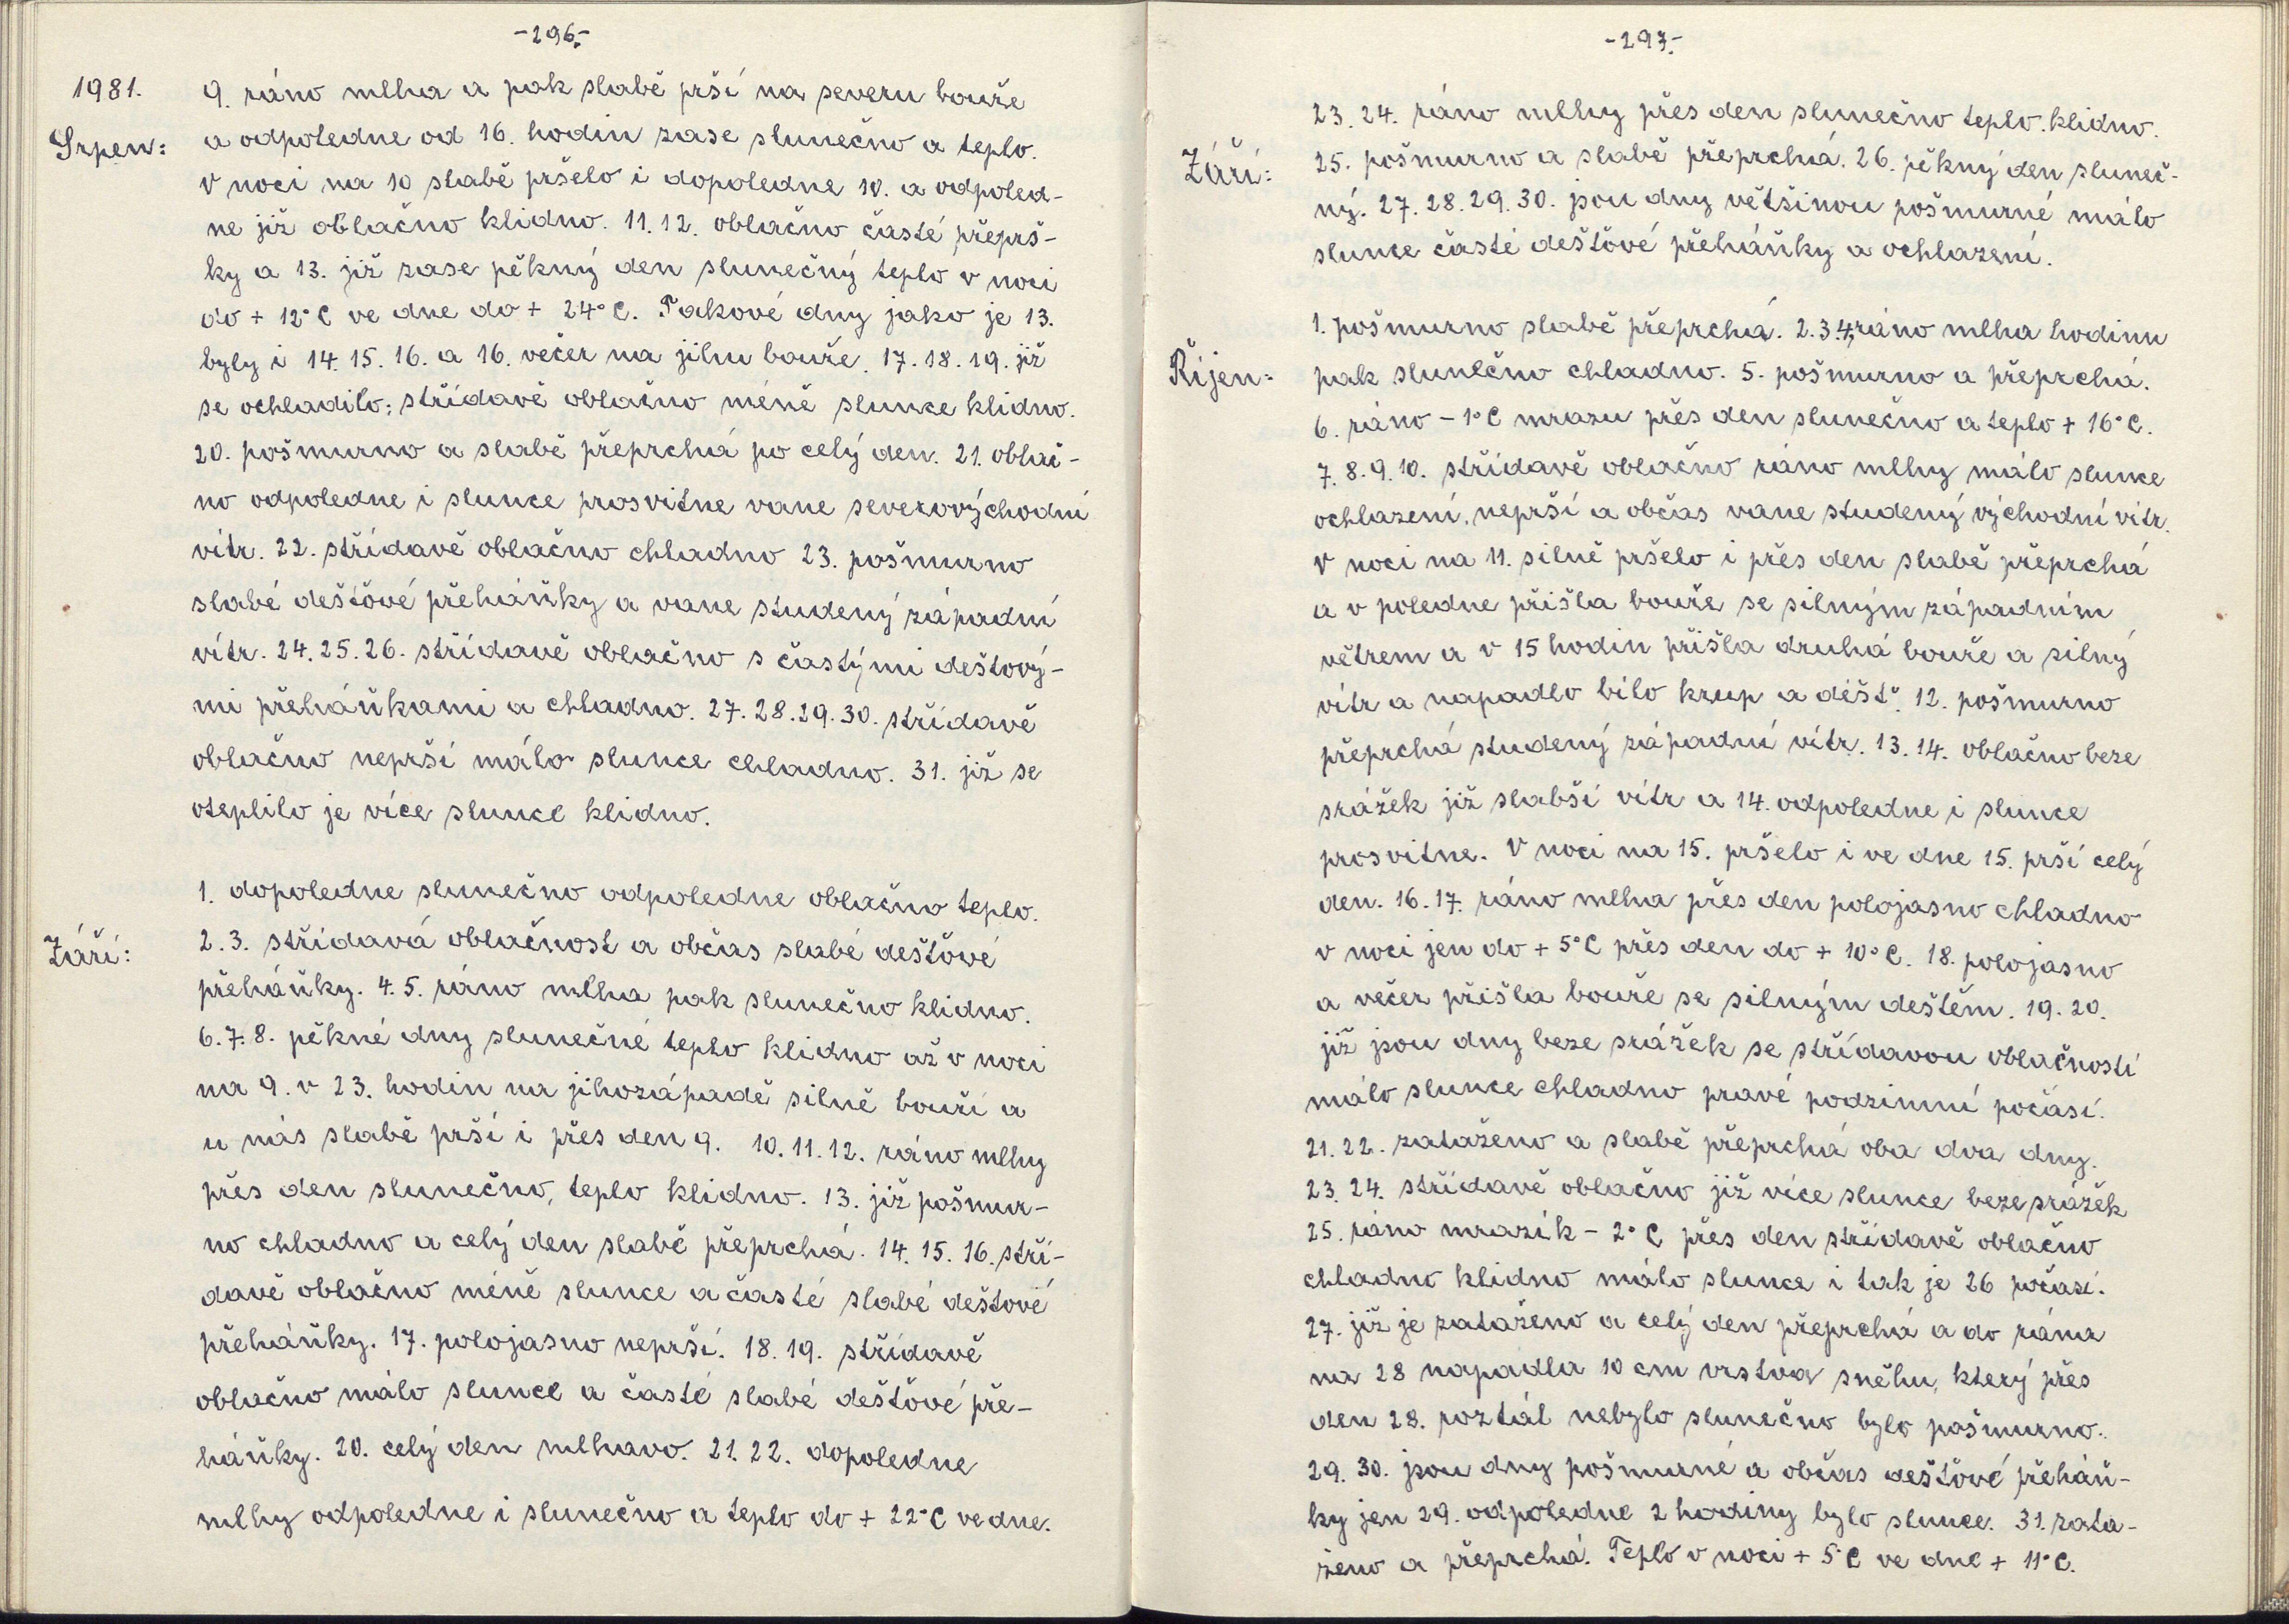 -296.-
1981.
9. ráno mlha a pak slabě prší na severu bouře
Srpen:
a odpoledne od 16. hodin zase slunečno a teplo.
V noci na 10 slabě pršelo i dopoledne 10. a odpoled-
ne již oblačno klidno. 11.12. oblačno časté přeprš-
ky a 13. již zase pěkný den slunečný teplo v noci
do + 12°C ve dne do + 24°C. Takové dny jako je 13.
byly i 14. 15. 16. a 16. večer na jihu bouře. 17. 18. 19. již
se ochladilo; střídavě oblačno méně slunce klidno.
20. pošmurno a slabě přeprchá po celý den. 21. oblač-
no odpoledne i slunce prosvitne vane severovýchodní
vítr. 22. střídavě oblačno chladno 23. pošmurno
slabé dešťové přeháňky a vane studený západní
vítr. 24. 25. 26. střídavě oblačno s častými dešťový-
mi přeháňkami a chladno. 27. 28. 29. 30. střídavě
oblačno neprší málo slunce chladno. 31. již se
oteplilo je více slunce klidno.
1. dopoledne slunečno odpoledne oblačno teplo.
Září:
2. 3. střídavá oblačnost a občas slabé dešťové
přeháňky. 4. 5. ráno mlha pak slunečno klidno.
6. 7. 8. pěkné dny slunečné teplo klidno až v noci
na 9. v 23. hodin na jihozápadě silně bouří a
u nás slabě prší i přes den 9. 10. 11. 12. ráno mlhy
přes den slunečno, teplo klidno. 13. již pošmur-
no chladno a celý den slabě přeprchá. 14. 15. 16. stří-
davě oblačno méně slunce a časté slabé dešťové
přeháňky. 17. polojasno neprší. 18. 19. střídavě
oblačno málo slunce a časté slabé dešťové pře-
háňky. 20. celý den mlhavo. 21. 22. dopoledne
mlhy odpoledne i slunečno a teplo do + 22°C ve dne.
-297.-
23. 24. ráno mlhy přes den slunečno teplo. klidno.
Září:
25. pošmurno a slabě přeprchá. 26. pěkný den sluneč-
ný. 27. 28. 29. 30. jsou dny většinou pošmurné málo
slunce časté dešťové přeháňky a ochlazení.
1. pošmurno slabě přeprchá. 2. 3. 4. ráno mlha hodinu
Říjen:
pak slunečno chladno. 5. pošmurno a přeprchá.
6. ráno - 1°C mrazu přes den slunečno a teplo + 16°C.
7. 8. 9. 10. střídavě oblačno ráno mlhy málo slunce
ochlazení, neprší a občas vane studený východní vítr.
V noci na 11. silně pršelo i přes den slabě přeprchá
a v poledne přišla bouře se silným západním
větrem a v 15 hodin přišla druhá bouře a silný
vítr a napadlo bílo krup a déšť. 12. pošmurno
přeprchá studený západní vítr. 13. 14. oblačno beze
srážek již slabší vítr a 14. odpoledne i slunce
prosvitne. V noci na 15. pršelo i ve dne 15. prší celý
den. 16. 17. ráno mlha přes den polojasno chladno
v noci jen do + 5°C přes den do + 10°C. 18. polojasno
a večer přišla bouře se silným deštěm. 19. 20.
již jsou dny beze srážek se střídavou oblačností
málo slunce chladno pravé podzimní počásí.
21. 22. zataženo a slabě přeprchá oba dva dny.
23. 24. střídavě oblačno již více slunce beze srážek
25. ráno mrazík - 2°C přes den střídavě oblačno
chladno klidno málo slunce i tak je 26 počasí.
27. již je zataženo a celý den přeprchá a do rána
na 28 napadla 10 cm vrstva sněhu, který přes
den 28. roztál nebylo slunečno bylo pošmurno.
29. 30. jsou dny pošmurné a občas dešťové přeháň-
ky jen 29. odpoledne 2 hodiny bylo slunce. 31. zata-
ženo a přeprchá. Teplo v noci + 5°C ve dne + 11°C.